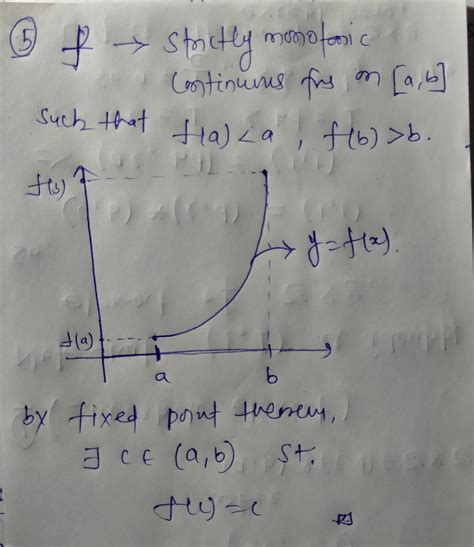 ⑤ f → strictly monotonic
continuous fns on [a,b]
such that f(a) < a , f(b) > b.
f(b)
y = f(x).
f(a)
a b
by fixed point theorem,
∃ c ∈ (a,b) St.
f(c) = c